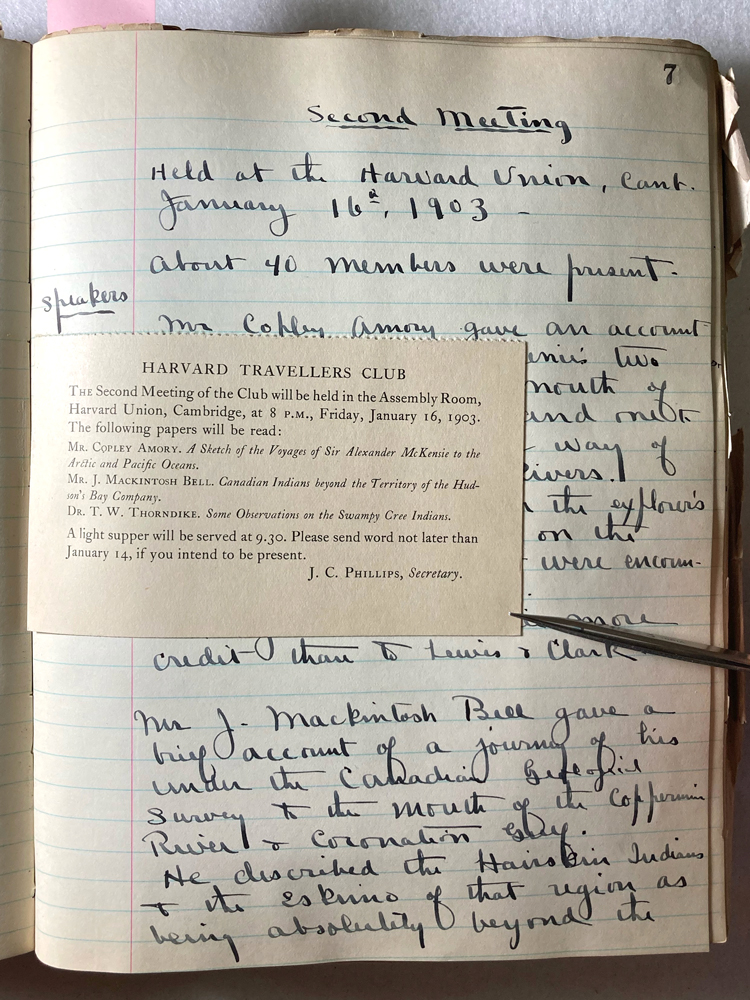 7
Second Meeting
Held at the Harvard Union, Camb.
January 16th, 1903 -
About 40 members were present.
Speakers
Mr Copley Amory gave an account
two
mouth of
and
way of
rivers.
the explorer's
on the
were encoun-
more
credit than to Lewis & Clark
HARVARD TRAVELLERS CLUB
THE Second Meeting of the Club will be held in the Assembly Room,
Harvard Union, Cambridge, at 8 P.M., Friday, January 16, 1903.
The following papers will be read:
MR. COPLEY AMORY. A Sketch of the Voyages of Sir Alexander McKensie to the
Arctic and Pacific Oceans.
MR. J. MACKINTOSH BELL. Canadian Indians beyond the Territory of the Hud-
son's Bay Company.
DR. T. W. THORNDIKE. Some Observations on the Swampy Cree Indians.
A light supper will be served at 9.30. Please send word not later than
January 14, if you intend to be present.
J. C. PHILLIPS, Secretary.
Mr J. Mackintosh Bell gave a
brief account of a journey of his
under the Canadian
Survey to the mouth of the Coppermin
River & Coronation Gulf.
He described the Hairskin Indians
& the Eskimo of that region as
being absolutely beyond the